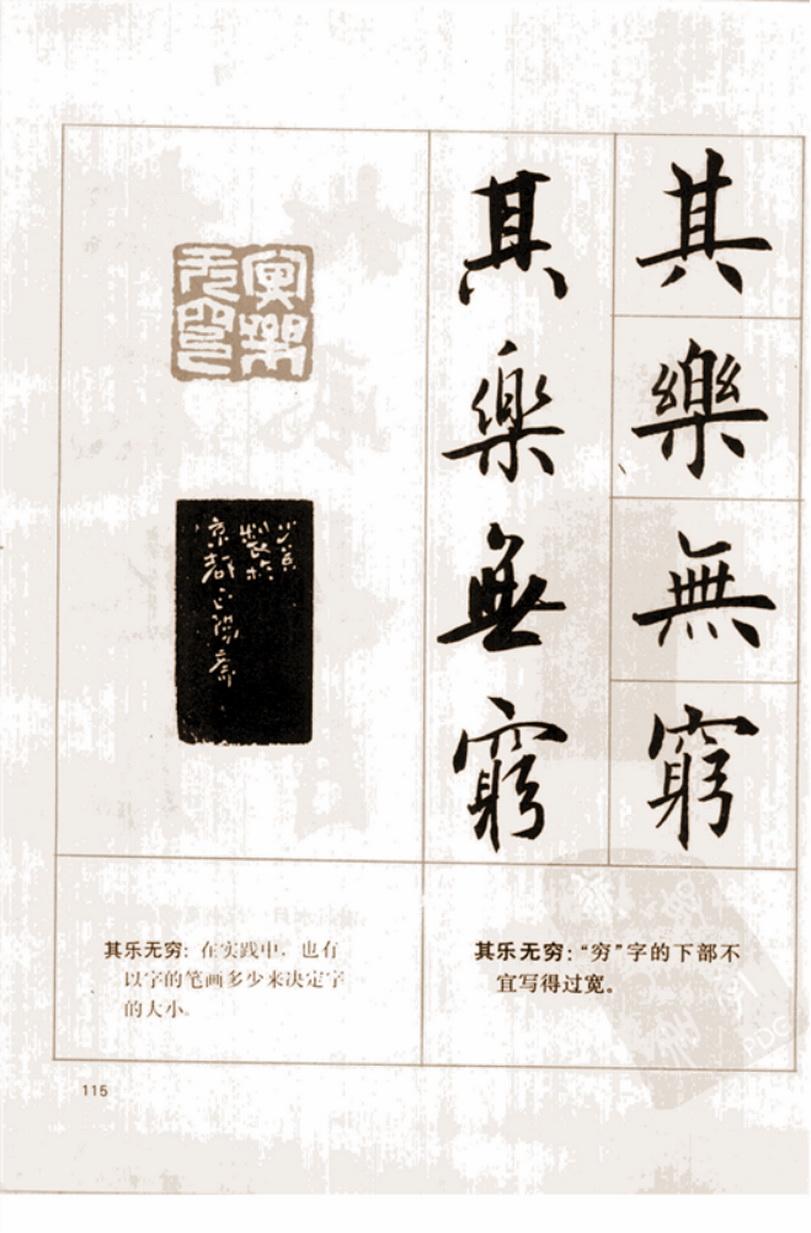 其樂無窮
其樂無窮
製於
京都正陽齋
其乐无穷：“穷”字的下部不
宜写得过宽。
其乐无穷：在实践中，也有
以字的笔画多少来决定字
的大小。
115
PDG